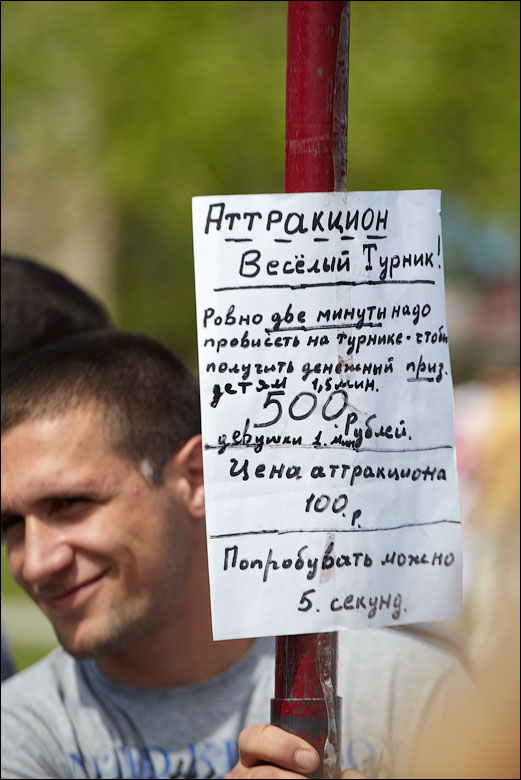 Аттракцион
Весёлый Турник!
Ровно две минуты надо
провисеть на турнике. чтобы
получить денежный приз.
детям 1,5 мин.
500 Рублей.
девушки 1. мин
Цена аттракциона
100 р.
Попробувать можно
5. секунд.